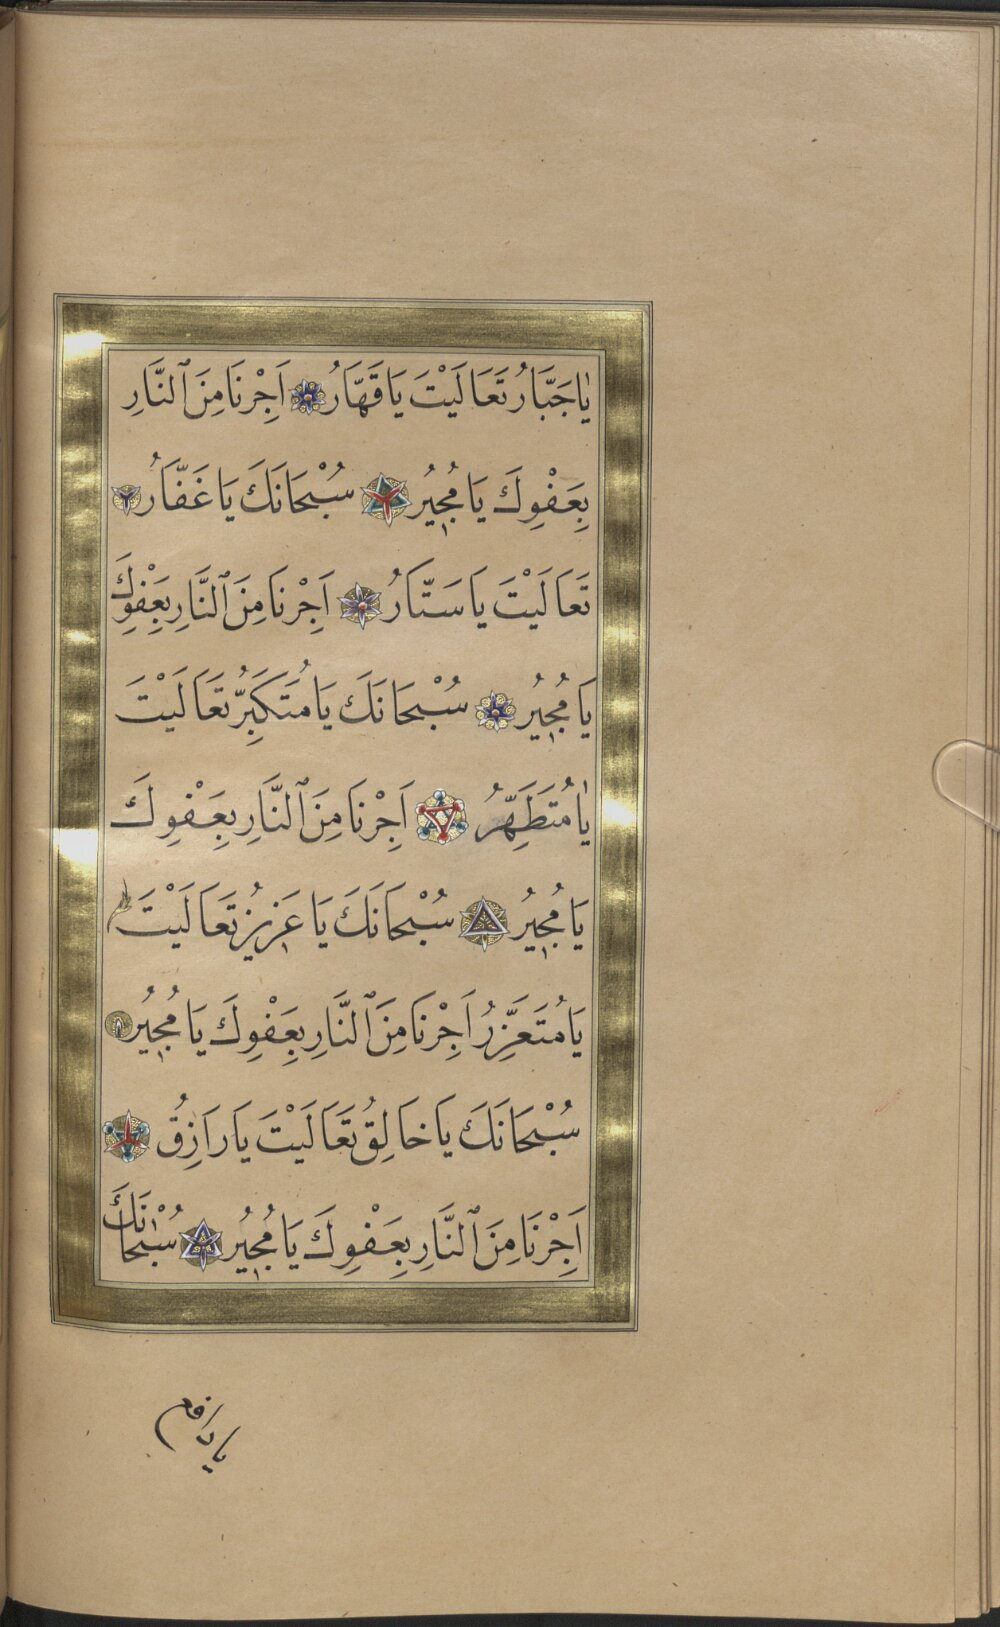 يٰاجَبَّارُ تَعَالَيْتَ يَا قَهَّارُ اَجِرْنَا مِنَ ٱلنَّارِ
بِعَفْوِكَ يَا مُجِيرُ سُبْحَانَكَ يَا غَفَّارُ
تَعَالَيْتَ يَا سَتَّارُ اَجِرْنَا مِنَ ٱلنَّارِ بِعَفْوِكَ
يَا مُجِيرُ سُبْحَانَكَ يَا مُتَكَبِّرُ تَعَالَيْتَ
يٰا مُتَطَهِّرُ اَجِرْنَا مِنَ ٱلنَّارِ بِعَفْوِكَ
يَا مُجِيرُ سُبْحَانَكَ يَا عَزِيزُ تَعَالَيْتَ
يَا مُتَعَزِّزُ اَجِرْنَا مِنَ ٱلنَّارِ بِعَفْوِكَ يَا مُجِيرُ
سُبْحَانَكَ يَا خَالِقُ تَعَالَيْتَ يَا رَازِقُ
اَجِرْنَا مِنَ ٱلنَّارِ بِعَفْوِكَ يَا مُجِيرُ سُبْحَانَكَ
يا دافع